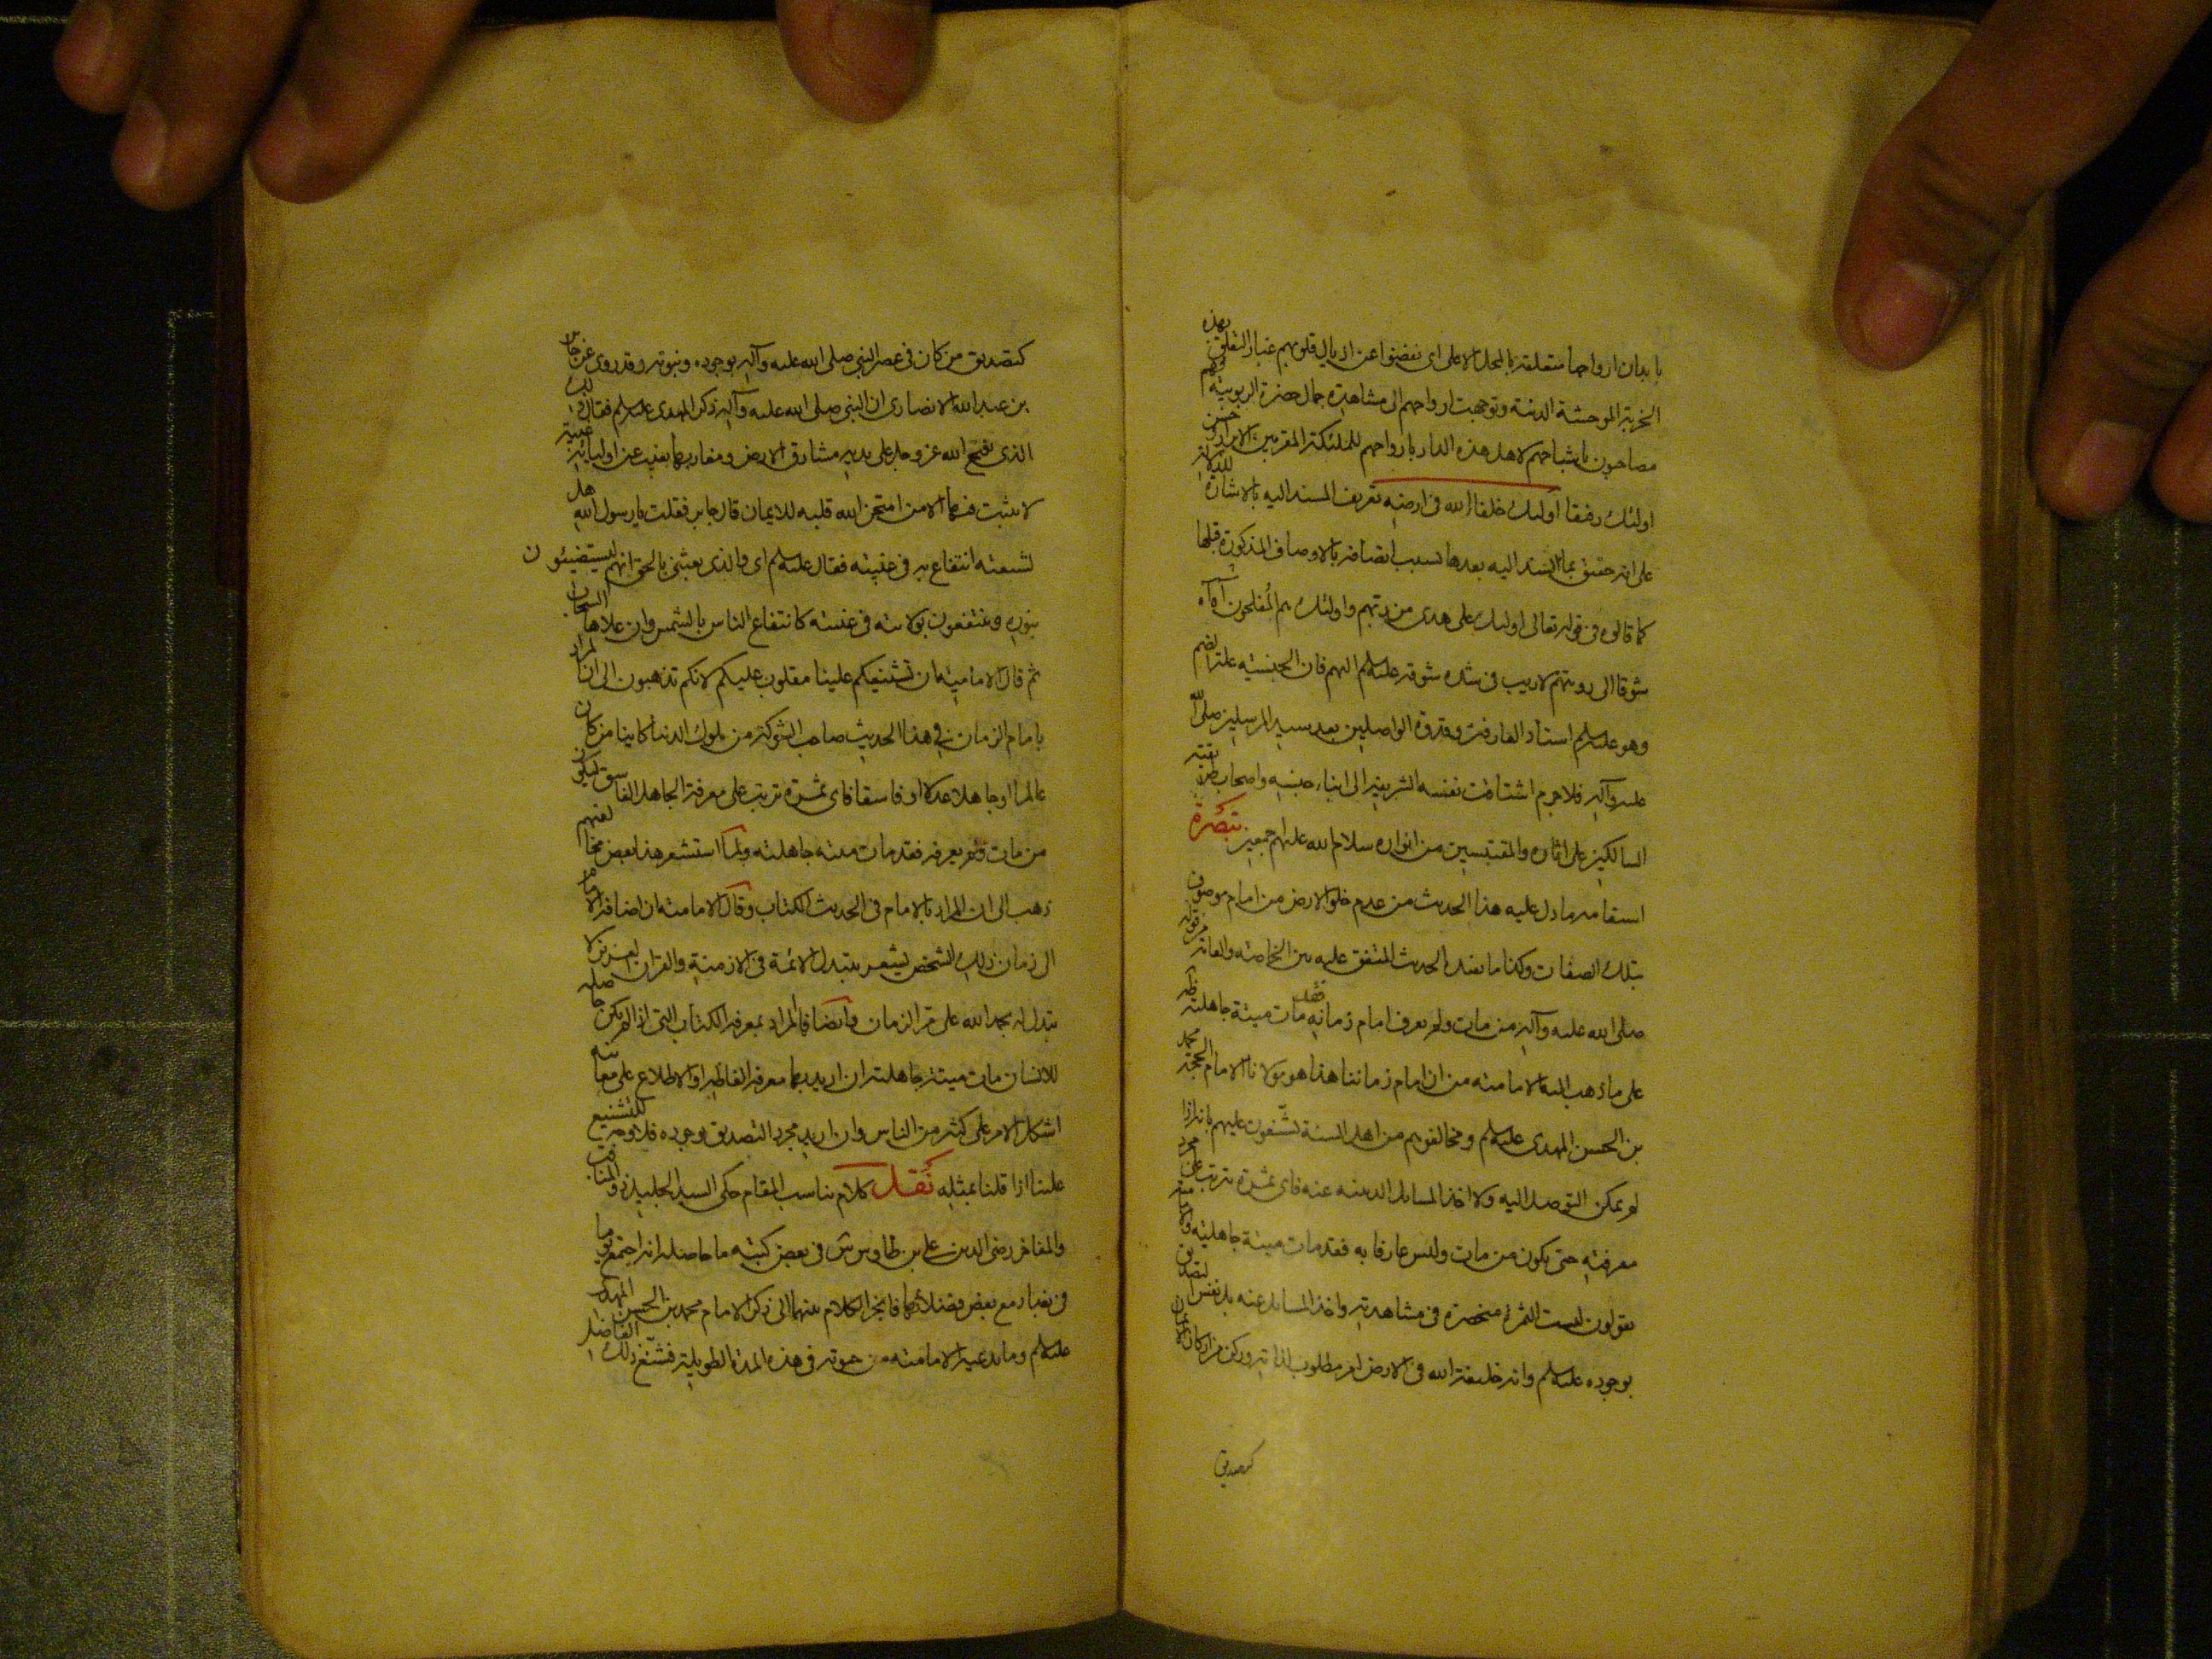 بابدان ارواحها متعلقة بالمحل الاعلى اى نفضوا عن اذيال قلوبهم غبار التعلق بهذه
الخربة الموحشة الدنية وتوجهت ارواحهم الى مشاهدة جمال حضرة الربوبية فهم
مصاحبون باشباحهم لاهل هذه الدار بارواحهم للملئكة المقربين الابرار وحسن
اولئك رفيقا اولئك خلفاء الله فى ارضه تعريف المسند اليه بالاشارة للدلالة
على انه حقيق بما المسند اليه بعدها بسبب اتصافه بالاوصاف المذكورة قبلها
كما قالوه فى قوله تعالى اولئك على هدى من ربهم واولئك هم المفلحون آه آه
شوقا الى رويتهم لا ريب فى شدة شوقه عليه السلم اليهم فان الجنسية علة الضم
وهو عليه السلم استاد العارفين وقدوة الواصلين بعد سيد المرسلين صلى الله
عليه وآله فلا جرم اشتاقت نفسه الشريفة الى ابناء جنسه واصحاب طريقته
السالكين على اثاره والمقتبسين من انواره سلام الله عليهم اجمعين تبصرة
استقامه ما دل عليه هذا الحديث من عدم خلو الارض من امام موصوف
بتلك الصفات وكذا ما يفيده الحديث المتفق عليه بين الخاصة والعامة من قوله
صلى الله عليه وآله من مات ولم يعرف امام زمانه فقد مات ميتة جاهلية ظهر
على ما ذهب اليه الامامية من ان امام زماننا هذا هو مولانا الامام الحجة محمد
بن الحسن المهدى عليه السلم ومخالفوهم من اهل السنة يشنعون عليهم بانه اذا
لم يمكن التوصل اليه ولا اخذ المسايل الدينية عنه فاى ثمرة تترتب على مجرد
معرفته حتى يكون من مات وليس عارفا به فقد مات ميتة جاهلية والامامية
يقولون ليست الثمرة منحصرة فى مشاهدته واخذ المسايل عنه بل نفس التصديق
بوجوده عليه السلم وانه خليفة الله فى الارض امر مطلوب لذاته وركن من اركان الايمان
كتصديق
كتصديق من كان فى عصر النبى صلى الله عليه وآله بوجوده ونبوته وقد روى عن جابر
بن عبد الله الانصارى ان النبى صلى الله عليه وآله ذكر المهدى عليه السلم فقال ذلك
الذى يفتح الله عز وجل على يديه مشارق الارض ومغاربها يغيب عن اوليائه غيبة
لا يثبت فيها الا من امتحن الله قلبه للايمان قال جابر فقلت يا رسول الله هل
لشيعته انتفاع به فى غيبته فقال عليه السلم اى والذى بعثنى بالحق انهم ليستضيئون
بنوره وينتفعون بولايته فى غيبته كانتفاع الناس بالشمس وان علاها السحاب
ثم قال الامامية ان تشنيعكم علينا مقلوب عليكم لانكم تذهبون الى ان المراد
بامام الزمان فى هذا الحديث صاحب الشوكة من ملوك الدنيا كاينا من كان
عالما او جاهلا عدلا او فاسقا فاى ثمرة تترتب على معرفة الجاهل الفاسق ليكون
من مات ولم يعرفه فقد مات ميتة جاهلية ولما استشعر هذا بعض مخالفيهم
ذهب الى ان المراد بالامام فى الحديث الكتاب وقال الامامية ان اضافة الامام
الى زمان ذلك الشخص يشعر بتبدل الائمة فى الازمنة والقران العزيز لا
تبدل له بحمد الله على مر الزمان وايضا فالمراد بمعرفة الكتاب التى اذا لم يكن حاصله
للانسان مات ميتة جاهلية ان اريد بها معرفة الفاظه او الاطلاع على معانيه
اشكل الامر على كثير من الناس وان اريد مجرد التصديق بوجوده فلا وجه للتشنيع
علينا اذا قلنا بمثله نقل كلام يناسب المقام حكى السيد الجليل ذو المناقب
والمفاخر رضى الدين على بن طاوس فى بعض كتبه ما حاصله انه اجتمع يوما
فى بغداد مع بعض فضلائها فانجر الكلام بينهما الى ذكر الامام محمد بن الحسن المهدى
عليه السلم وما يدعيه الامامية من حيوته فى هذه المدة الطويلة فشنع ذلك الفاضل